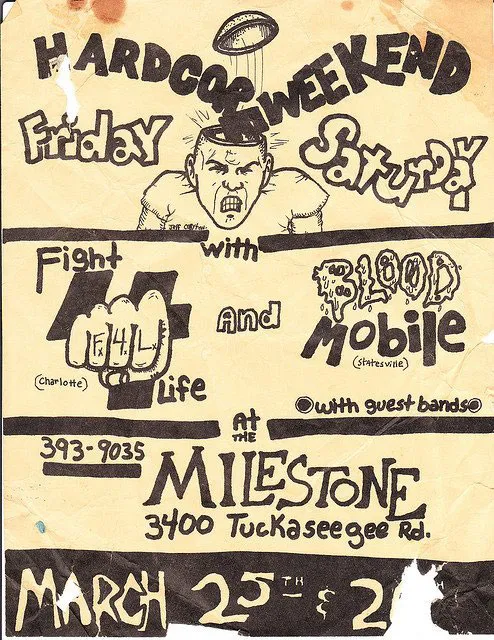 HARDCORE WEEKEND
Friday Saturday
JEFF CLAYTON
with
Fight 4 Life
F. 4. L.
(Charlotte)
And
BLOOD
Mobile
(Statesville)
with guest bands
At
THE
393-9035
MILESTONE
3400 Tuckaseegee Rd.
MARCH 25TH & 2